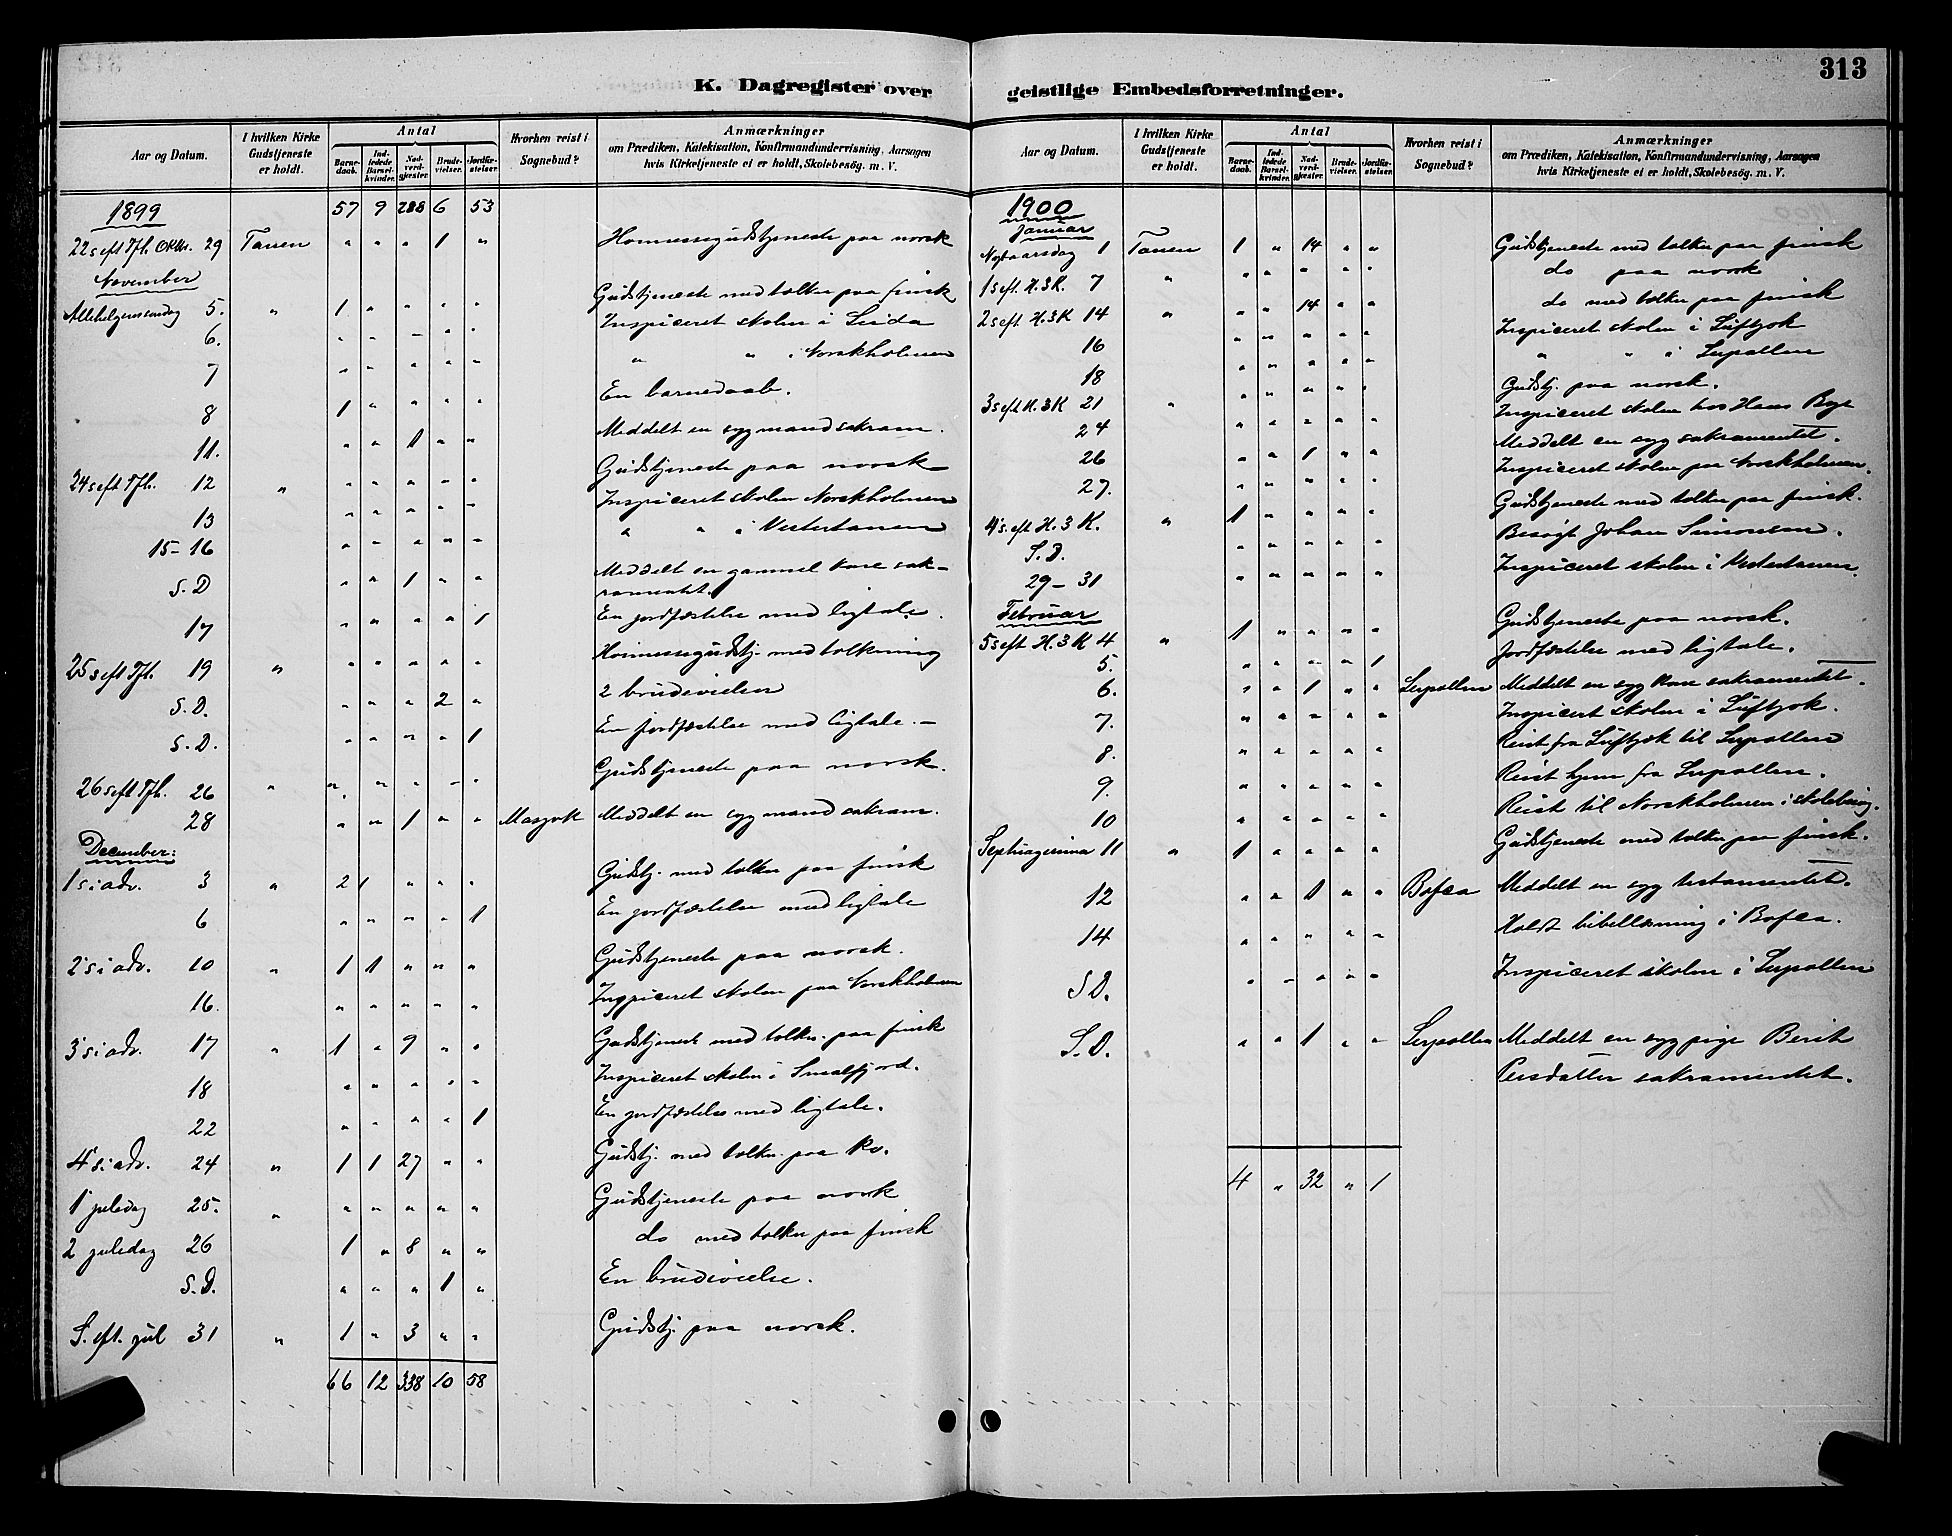 313
K. Dagregister over geistlige Embedsforretninger.
Aar og Datum. I hvilken Kirke Gudstjeneste er holdt. Antal Barnedaab. Indledede Barselkvinder. Nadverdgjester. Brudevielser. Jordfæstelser. Hvorhen reist i Sognebud? Anmærkninger om Prædiken, Katekisation, Konfirmandundervisning, Aarsagen hvis Kirketjeneste ei er holdt, Skolebesög. m. V.
1899 57 9 288 6 53
22 s eft Tfh. Oktbr. 29 Tanen " " " 1 " Hoimessegudstjeneste paa norsk
November
Allehelgensøndag 5. " 1 " " " " Gudstjeneste med tolker paa finsk
6. " " " " " Inspiceret skolen i Leida
7 " " " " " " " i Norskholmen
8 1 " " " " En barnedaab.
11. " " 1 " " Meddelt en syg mand sakram.
24 s eft Tfh. 12 " " " " " " Gudstjeneste paa norsk
13 " " " " " Inspiceret skolen Norskholmen
15-16 " " " " " " " i Vestertanen
S.D " " 1 " " Meddelt en gammel kone sak-
ramentet.
17 " " " " 1 En jordfæstelse med ligtale.
25 s eft Tfh. 19 " " " " " " Hoimessegudstj. med tolkning
S.D. " " " 2 " 2 brudevielser
S.D. " " " " 1 En jordfæstelse med ligtale.
26 s eft Tfh. 26 " " " " " " Gudstjeneste paa norsk.
28 " " 1 " " Masjok Meddelt en syg mand sakram.
December:
1 s i adv. 3 " 2 1 " " " Gudstj. med tolker paa finsk
6 " " " " 1 En jordfæstelse med ligtale
2 s i adv. 10 " 1 1 " " " Gudstjeneste paa norsk.
16. " " " " " Inspiceret skolen paa Norskholmen
3 s i adv. 17 " 1 " 9 " " Gudstjeneste med tolker paa finsk
18 " " " " " Inspiceret skolen i Smalfjord.
22 " " " " 1 En jordfæstelse med ligtale.
4 s i adv. 24 " 1 1 27 " " Gudstj. med tolker paa
1 juledag 25. " " " " " " Gudstjeneste paa norsk
2 juledag 26 1 " 8 " " do med tolker paa finsk
S.D. " " " 1 " En brudevielse.
S. eft. jul 31 " 1 " 3 " " Gudstj. paa norsk.
66 12 338 10 58
Aar og Datum. I hvilken Kirke Gudstjeneste er holdt. Antal Barnedaab. Indledede Barselkvinder. Nadverdgjester. Brudevielser. Jordfæstelser. Hvorhen reist i Sognebud? Anmærkninger om Prædiken, Katekisation, Konfirmandundervisning, Aarsagen hvis Kirketjeneste ei er holdt, Skolebesög. m. V.
1900
Januar
Nytaarsdag 1 Tanen 1 " 14 " " Gudstjeneste med tolker paa finsk
1 s eft. H.3K. 7 " " " " " " do paa norsk
2 s eft. H.3K 14 " " " 14 " " do med tolker paa finsk
16 " " " " " Inspiceret skolen i Luftjok
18 " " " " " " " i Leipollen
3 s eft H.3K 21 " " " " " " Gudstj. paa norsk.
24 " " " " " Inspiceret skolen hos Hans Bye
26 " " 1 " " Meddelt en syg sakramentet.
27. " " " " " Inspiceret skolen paa Norskholmen.
4 s. eft H.3K. " 1 " " " " Gudstjeneste med tolker paa finsk.
S.D. " " " " " Besøgt Johan Simonsen.
29-31 " " " " " Inspiceret skolen i Vestertanen.
Februar
5 s eft H.3K 4 " 1 " " " " Gudstjeneste paa norsk.
5. " " " " 1 Jordfæstelse med ligtale.
6. " " 1 " " Leipollen Meddelt en syg kone sakramentet.
7. " " " " " Inspicert skolen i Luftjok.
8. " " " " " Reist fra Luftjok til Leipollen
9. " " " " " Reist hjem fra Leipollen.
10 " " " " " Reist til Norskholmen i skolebesøg.
Septuagesima 11 " 1 " " " " Gudstjeneste med tolker paa finsk.
12 " " 1 " " Bofea Meddelt en syg testamentet.
14 " " " " " Holdt bibellæsning i Bofea.
S D. " " " " " Inspiceret skolen i Leipollen
S.D. " " 1 " " Leipollen Meddelt en syg pige Berit
Persdatter sakramentet.
4 " 32 " 1